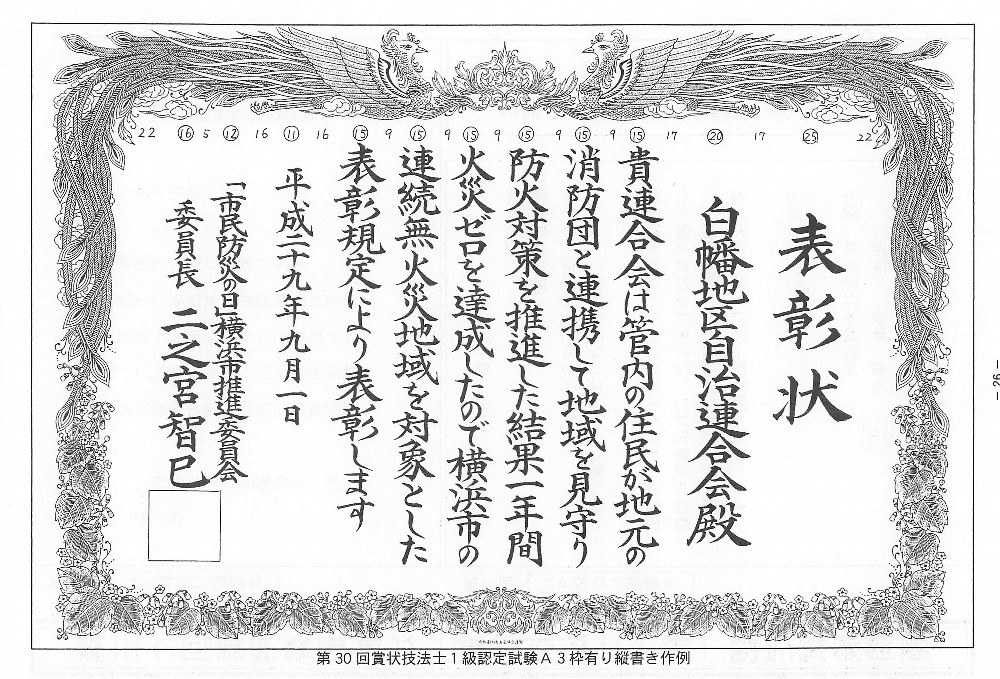 22 ⑯ 5 ⑫ 16 ⑪ 16 ⑮ 9 ⑮ 9 ⑮ 9 ⑮ 9 ⑮ 9 ⑮ 17 ⑳ 17 ㉕ 22
表彰状
白幡地区自治連合会殿
貴連合会は管内の住民が地元の
消防団と連携して地域を見守り
防火対策を推進した結果一年間
火災ゼロを達成したので横浜市の
連続無火災地域を対象とした
表彰規定により表彰します
平成二十九年九月一日
「市民防災の日」横浜市推進委員会
委員長 二之宮智巳
第30回賞状技法士1級認定試験A3枠有り縦書き作例